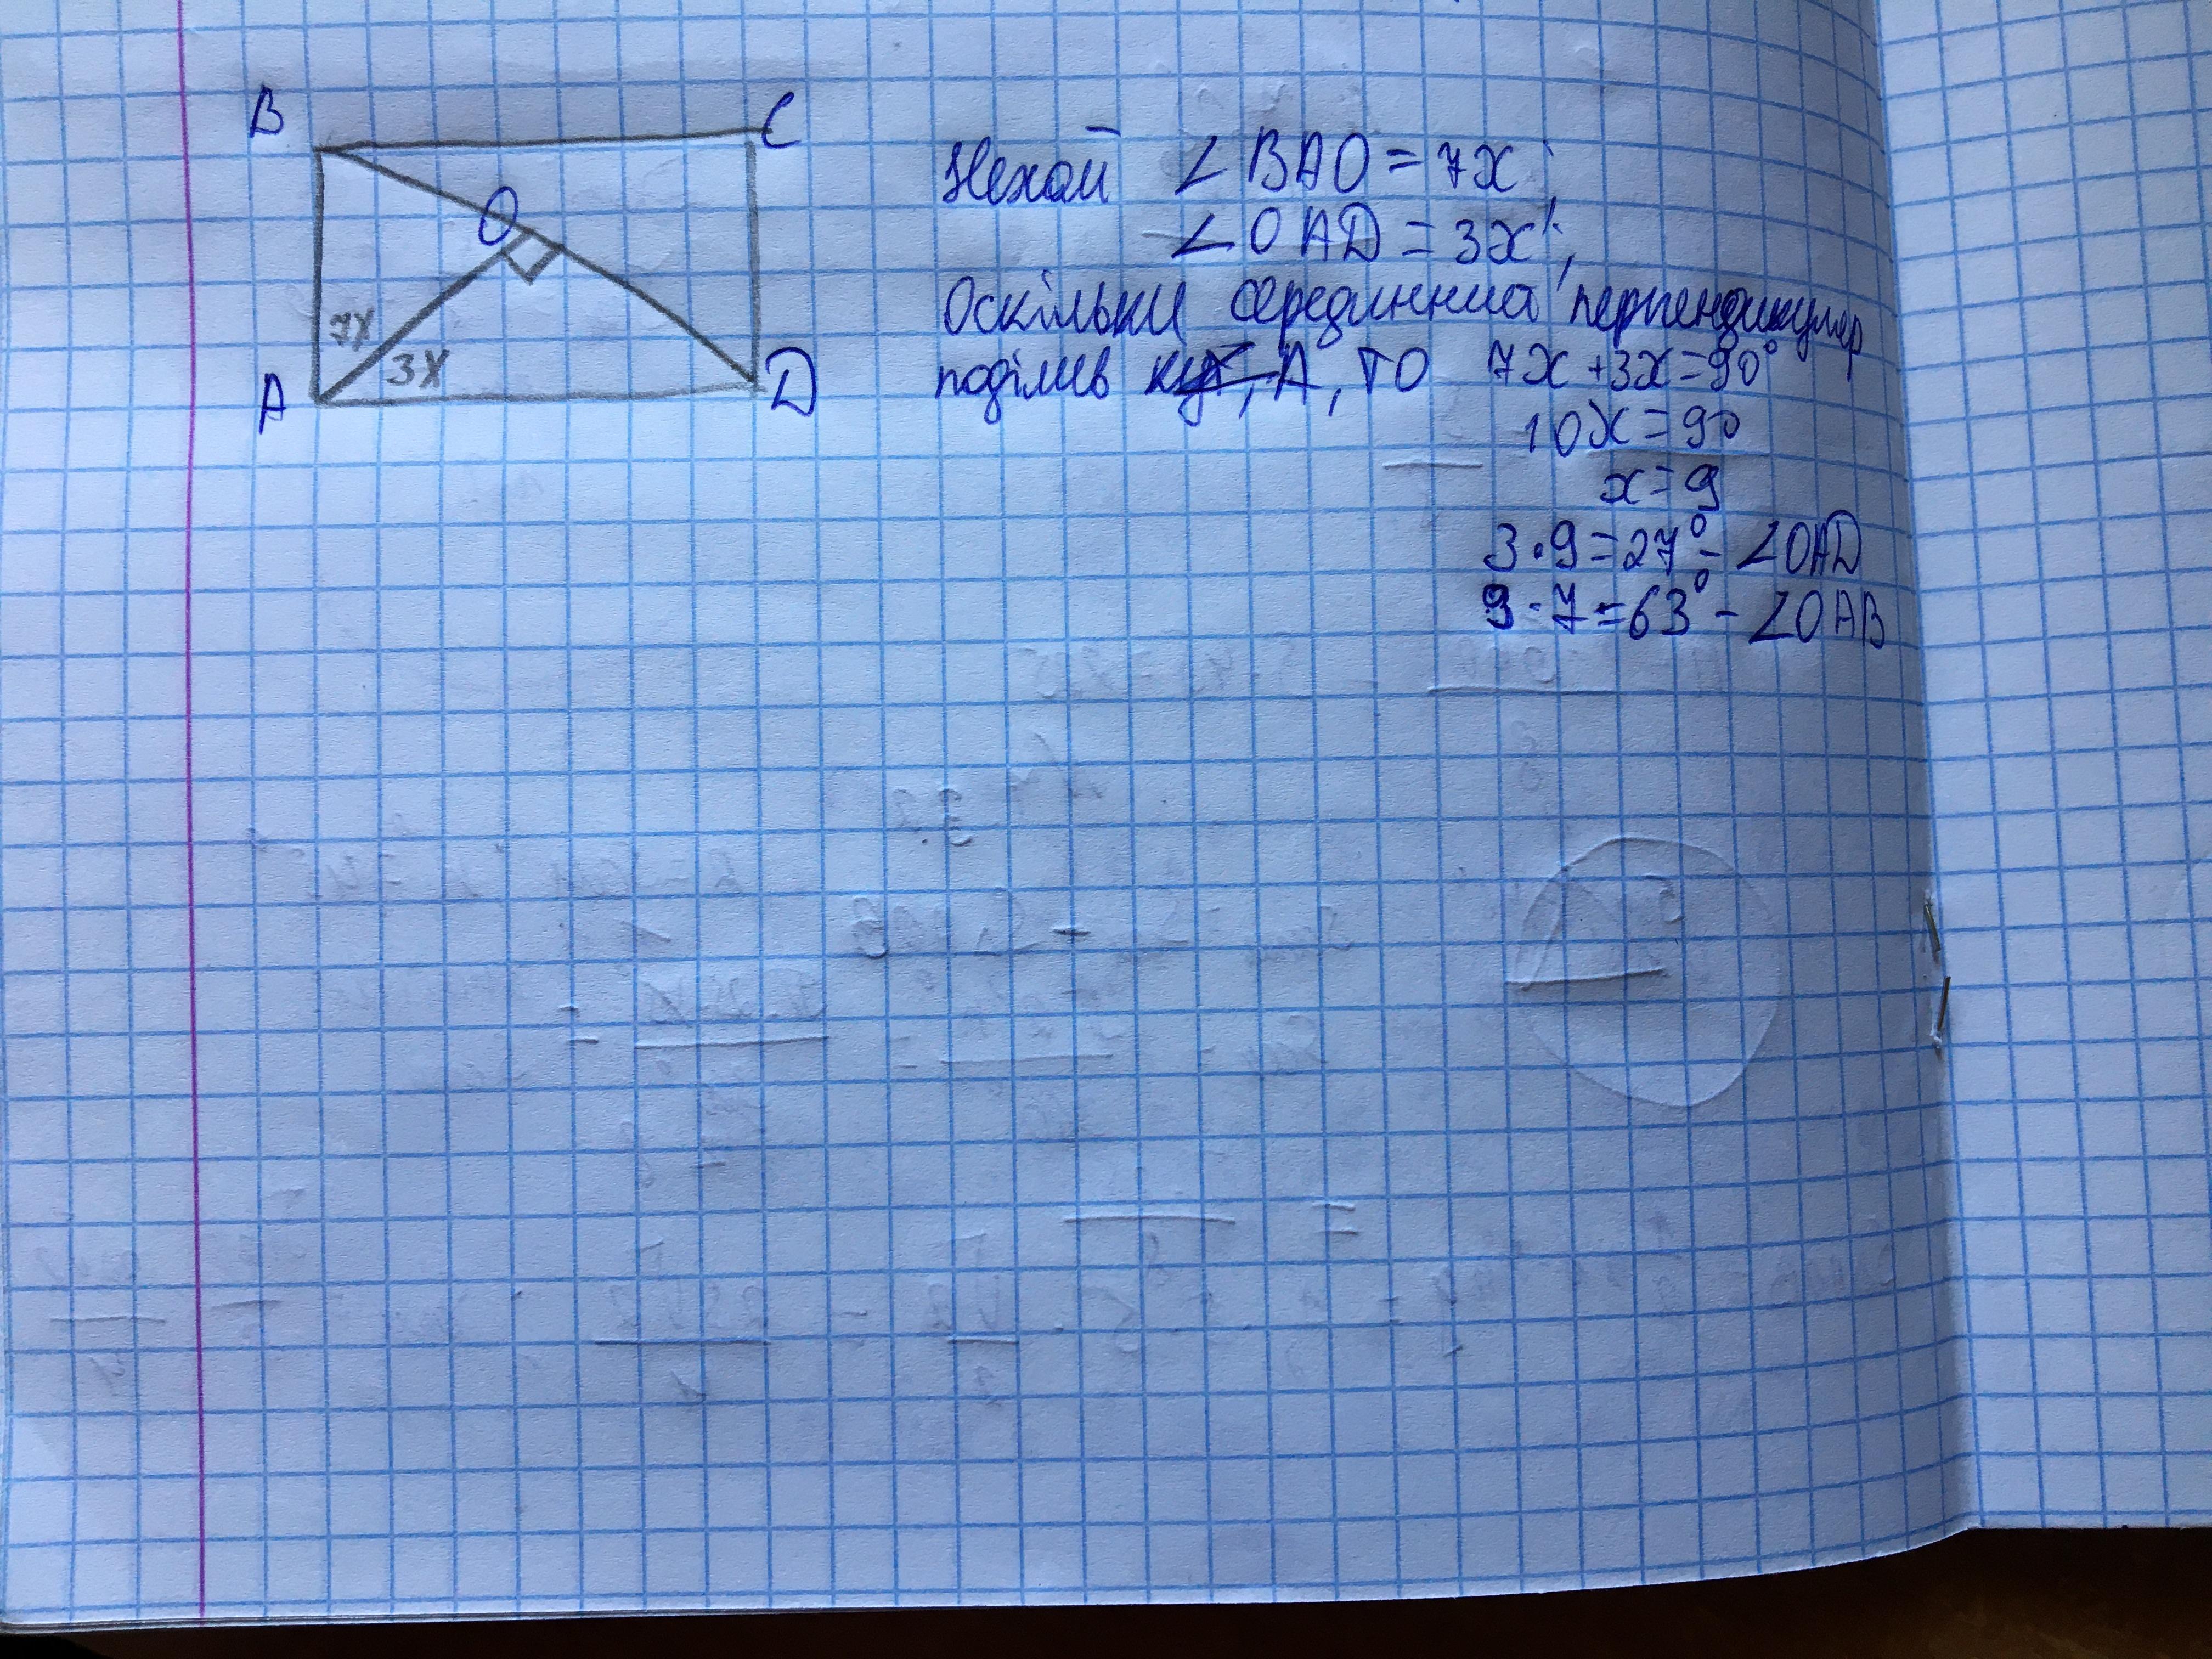 B
C
O
7x
3x
A
D
Нехай ∠BAO = 7x;
∠OAD = 3x;
Оскільки серединний перпендикуляр
поділив кут, A, то 7x + 3x = 90°
10x = 90
x = 9
3·9 = 27° - ∠OAD
9·7 = 63° - ∠OAB